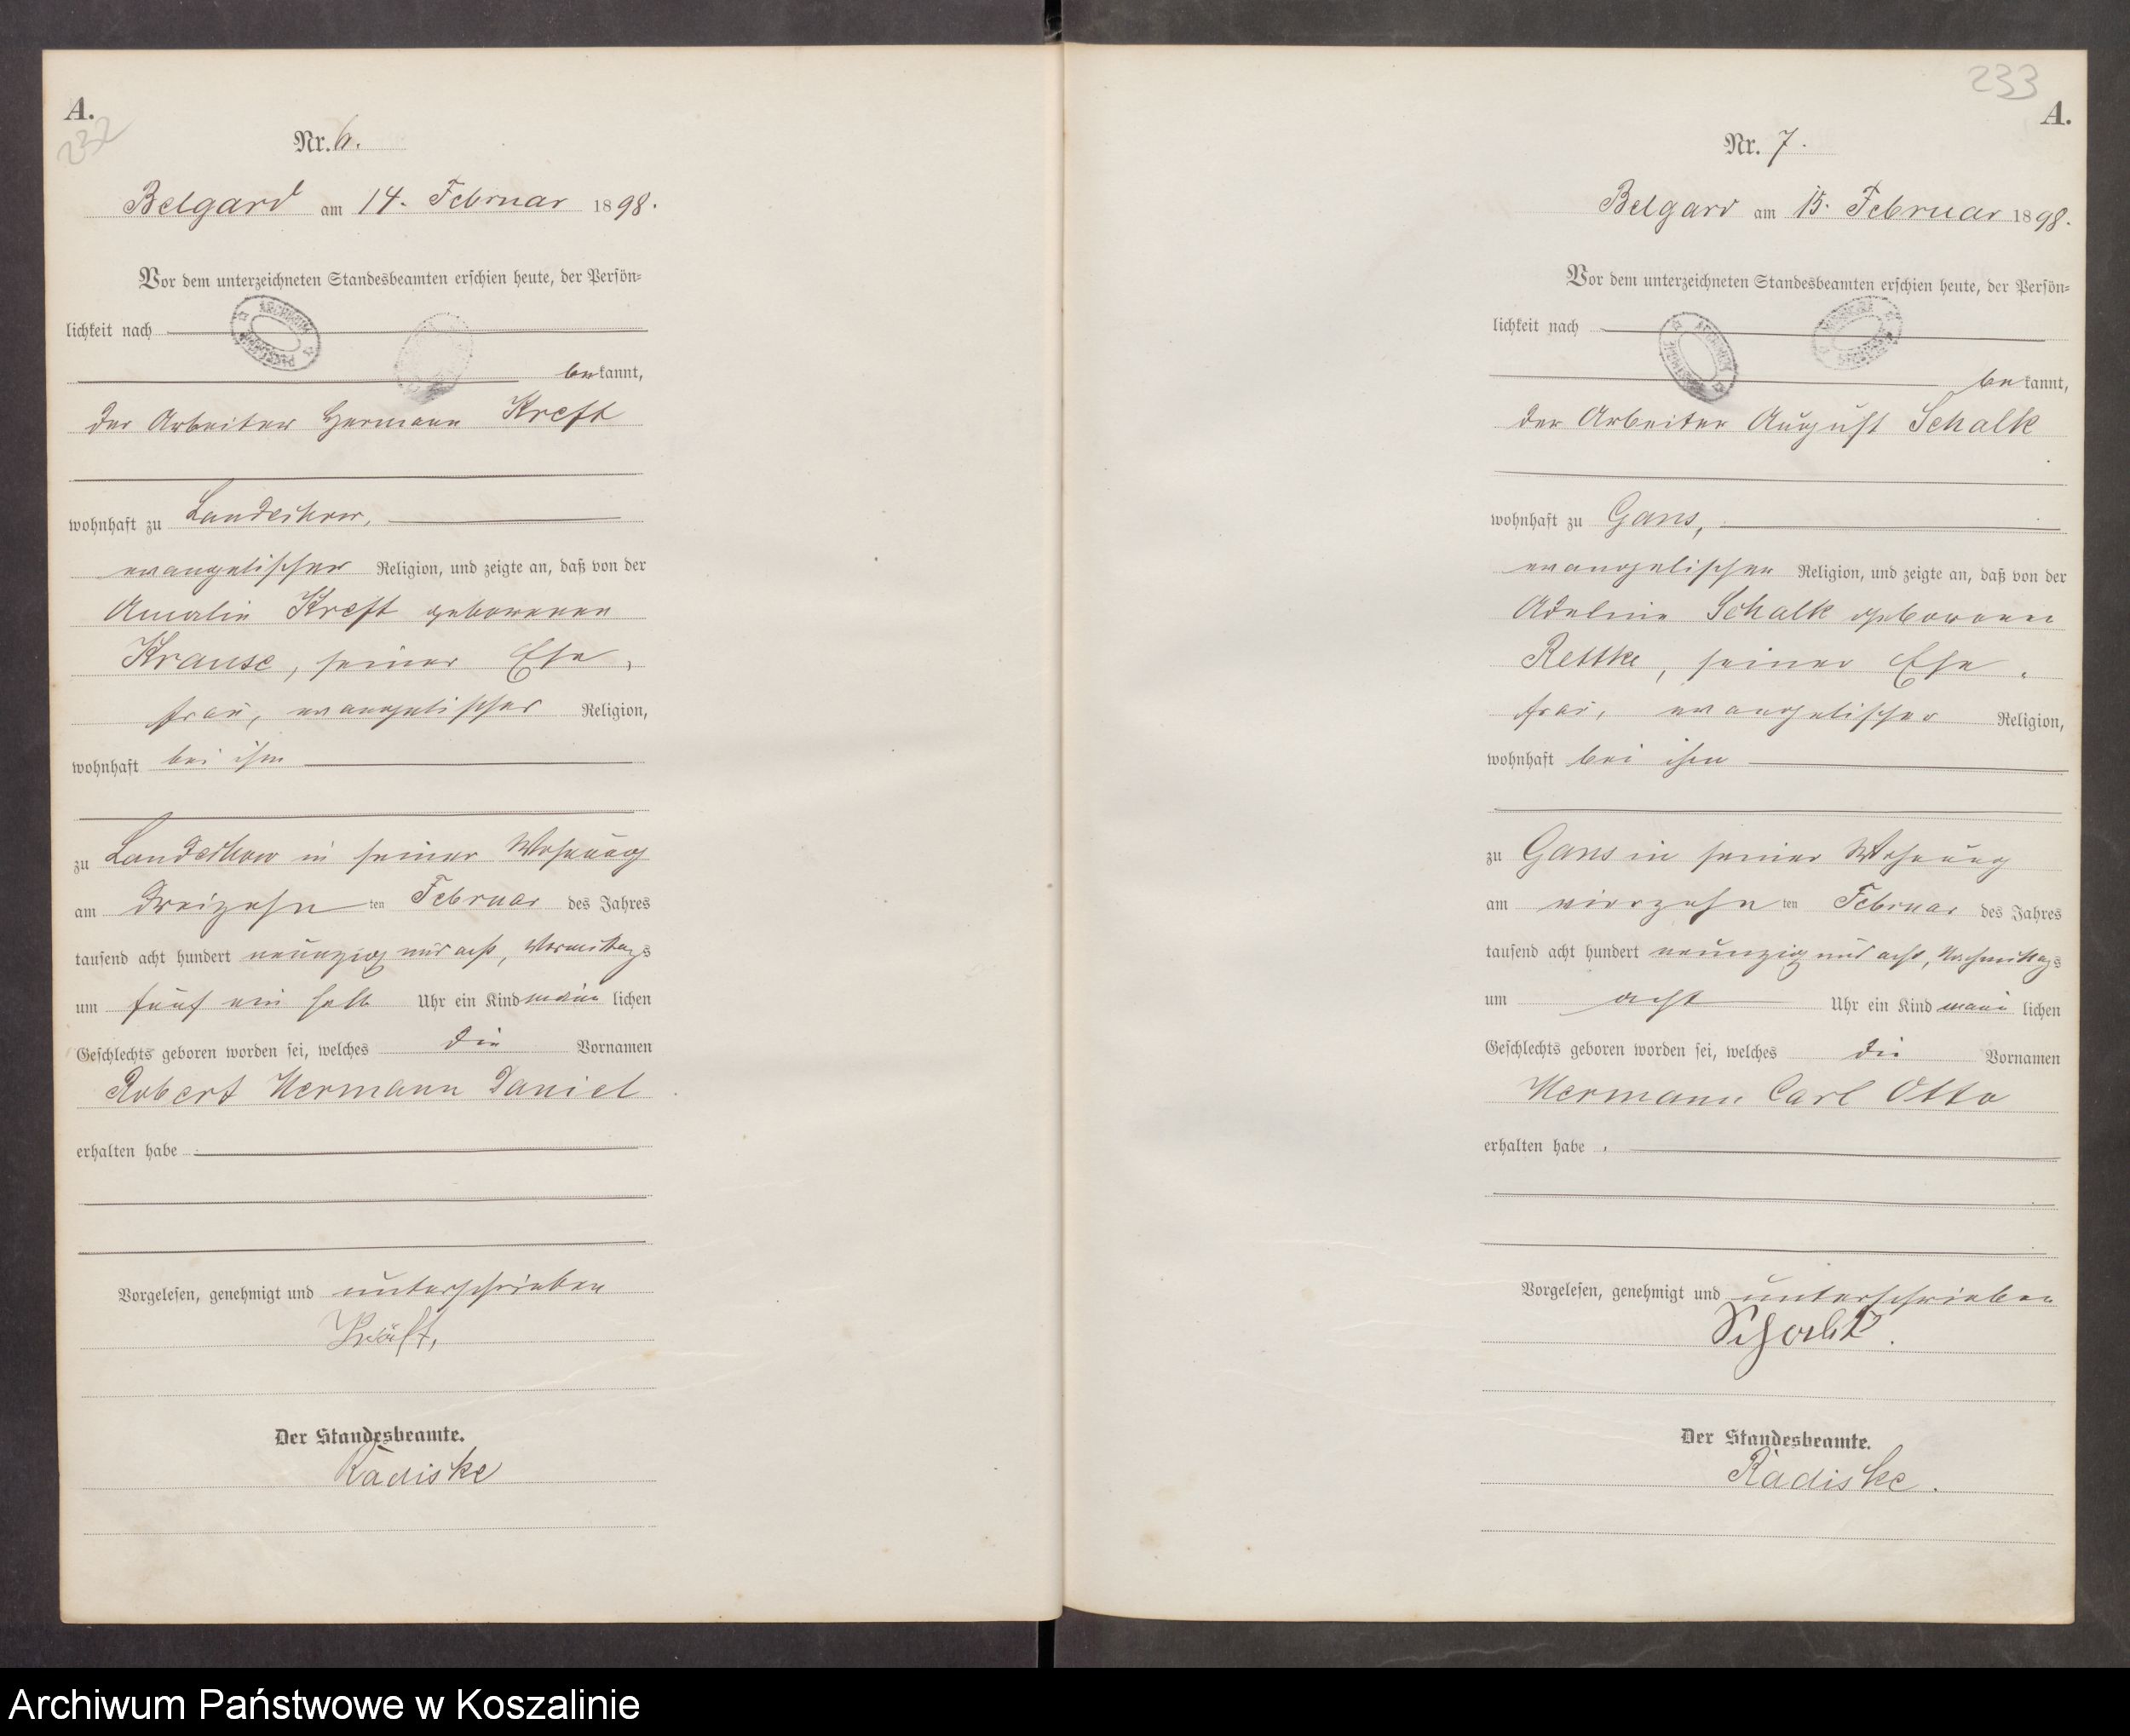 A.
232
Nr. 6.
Belgard am 14. Februar 1898.
Vor dem unterzeichneten Standesbeamten erschien heute, der Persön-
lichkeit nach
bekannt,
der Arbeiter Hermann Kreft
wohnhaft zu Landechow,
evangelischer Religion, und zeigte an, daß von der
Amalie Kreft geborenen
Krause, seiner Ehe,
frau, evangelischer Religion,
wohnhaft bei ihm
zu Landechow in seiner Wohnung
am dreizehnten Februar des Jahres
tausend acht hundert neunzig und acht, Vormittags
um fünf ein halb Uhr ein Kind männlichen
Geschlechts geboren worden sei, welches die Vornamen
Robert Hermann Daniel
erhalten habe
Vorgelesen, genehmigt und unterschrieben
Kräft,
Der Standesbeamte.
Radiske
233
A.
Nr. 7.
Belgard am 15. Februar 1898.
Vor dem unterzeichneten Standesbeamten erschien heute, der Persön-
lichkeit nach
bekannt,
der Arbeiter August Schalk
wohnhaft zu Gans,
evangelischer Religion, und zeigte an, daß von der
Adeline Schalk geborenen
Rettke, seiner Ehe,
frau, evangelischer Religion,
wohnhaft bei ihm
zu Gans in seiner Wohnung
am vierzehnten Februar des Jahres
tausend acht hundert neunzig und acht, Nachmittags
um acht Uhr ein Kind männlichen
Geschlechts geboren worden sei, welches die Vornamen
Hermann Carl Otto
erhalten habe.
Vorgelesen, genehmigt und unterschrieben
Schalk.
Der Standesbeamte.
Radiske.
Archiwum Państwowe w Koszalinie